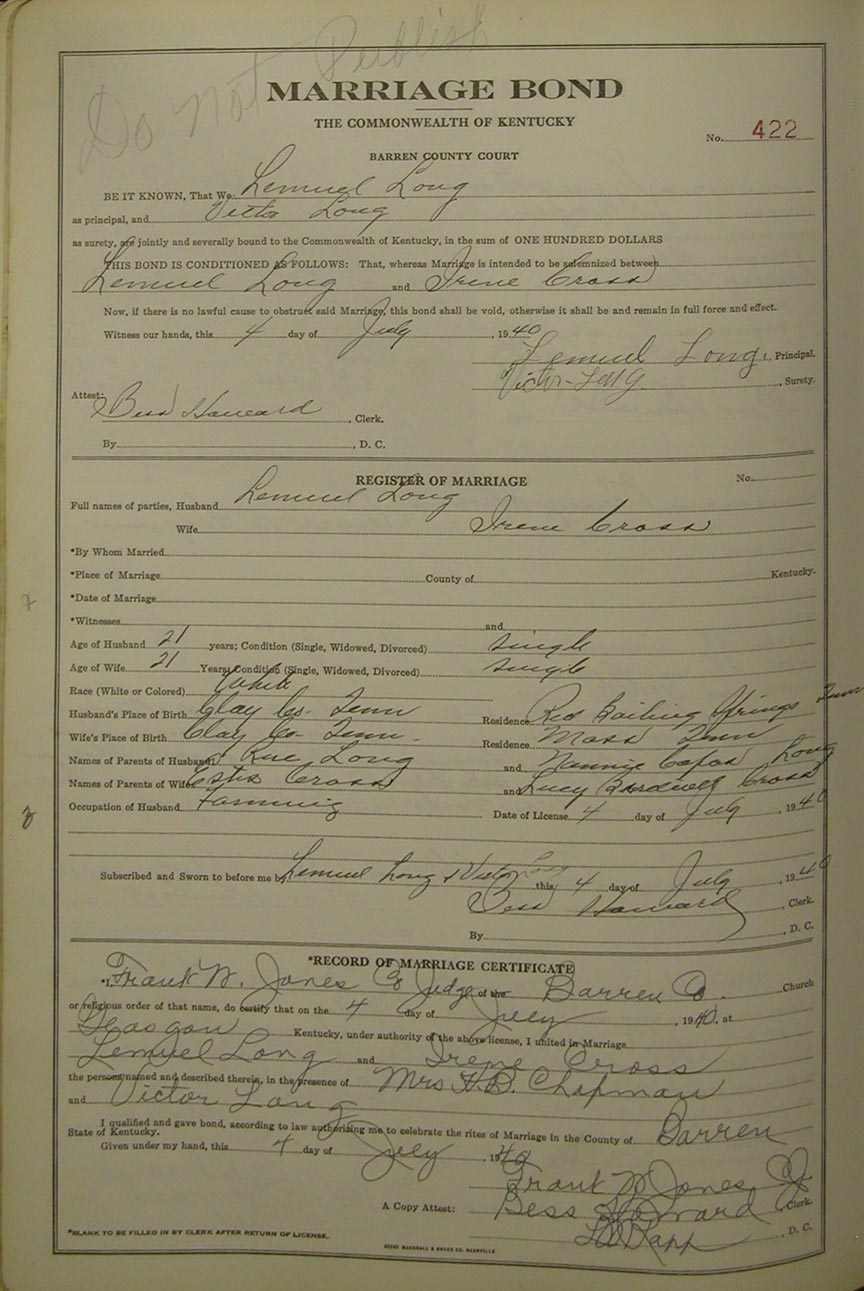 Do Not Publish
MARRIAGE BOND
THE COMMONWEALTH OF KENTUCKY
No. 422
BARREN COUNTY COURT
BE IT KNOWN, That We Lemuel Long
as principal, and Victor Long
as surety, are jointly and severally bound to the Commonwealth of Kentucky, in the sum of ONE HUNDRED DOLLARS
THIS BOND IS CONDITIONED AS FOLLOWS: That, whereas Marriage is intended to be solemnized between
Lemuel Long and Irene Cross
Now, if there is no lawful cause to obstruct said Marriage, this bond shall be void, otherwise it shall be and remain in full force and effect.
Witness our hands, this 4 day of July, 1940
Lemuel Long, Principal.
Victor Long, Surety.
Attest:
Bess Howard, Clerk.
By, D. C.
REGISTER OF MARRIAGE No.
Full names of parties, Husband Lemuel Long
Wife Irene Cross
*By Whom Married
*Place of Marriage County of Kentucky.
*Date of Marriage
*Witnesses and
Age of Husband 21 years; Condition (Single, Widowed, Divorced) single
Age of Wife 21 Years; Condition (Single, Widowed, Divorced) single
Race (White or Colored) White
Husband's Place of Birth Clay Co. Tenn Residence Red Boiling Springs Tenn
Wife's Place of Birth Clay Co. Tenn. Residence Moss Tenn
Names of Parents of Husband Long and Nannie Long
Names of Parents of Wife Estes Cross and Lucy Cross
Occupation of Husband Farming Date of License 4 day of July, 1940
Subscribed and Sworn to before me by Lemuel Long & Victor Long this 4 day of July 1940
Bess Howard, Clerk.
By, D. C.
*RECORD OF MARRIAGE CERTIFICATE
*I, Frank W. Jones Co Judge of the Barren Co. Church
or religious order of that name, do certify that on the 4 day of July, 1940, at
Glasgow Kentucky, under authority of the above license, I united in Marriage
Lemuel Long and Irene Cross
the persons named and described therein, in the presence of Mrs H.B. Chapman
and Victor Long
I qualified and gave bond, according to law authorizing me to celebrate the rites of Marriage in the County of Barren
State of Kentucky.
Given under my hand, this 4 day of July, 1940
Frank W Jones
A Copy Attest: Bess Howard Clerk.
, D. C.
*BLANK TO BE FILLED IN BY CLERK AFTER RETURN OF LICENSE.